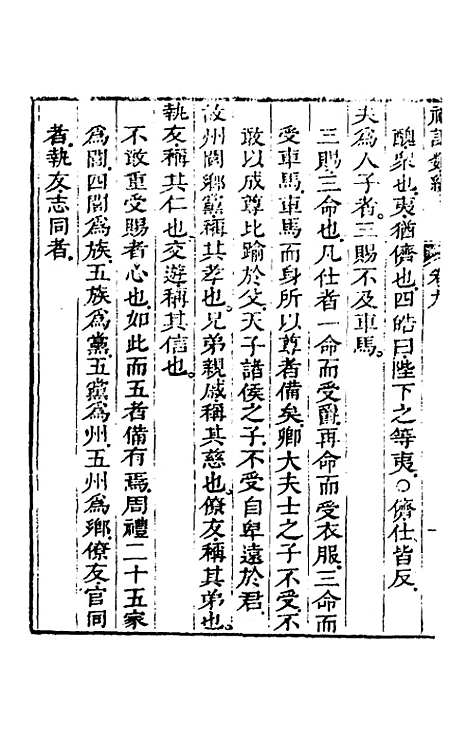 卷九
醜衆也夷猶儕也四皓曰陛下之等夷○儕仕皆反
夫爲人子者三賜不及車馬
三賜三命也凡仕者一命而受爵再命而受衣服三命而
受車馬車馬而身所以尊者備矣卿大夫士之子不受不
敢以成尊比踰於父天子諸侯之子不受自卑遠於君
故州閭鄉黨稱其孝也兄弟親戚稱其慈也僚友稱其弟也
執友稱其仁也交遊稱其信也
不敢重受賜者心也如此而五者備有焉周禮二十五家
爲閭四閭爲族五族爲黨五黨爲州五州爲鄉僚友官同
者執友志同者